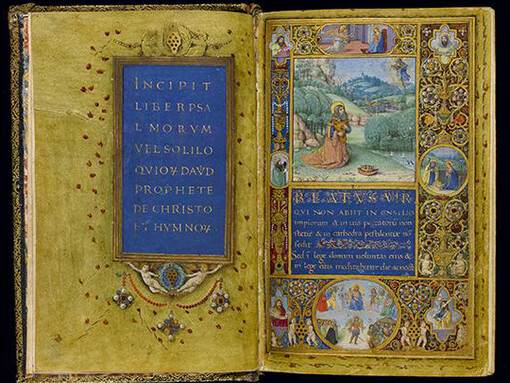 INCIPIT
LIBER PSA
LMORVM
VEL SOLILO
QVIOꝜ DAVD
PROPHETE
DE CHRISTO
ET HYMNOꝜ
BEATVS VIR
QVI NON ABIIT IN
impiorum & in uia peccatorū non
stetit & in cathedra pestilentie nō
sedit
Sed ī lege domini uoluntas eius &
in lege eius meditabitur die ac nocte